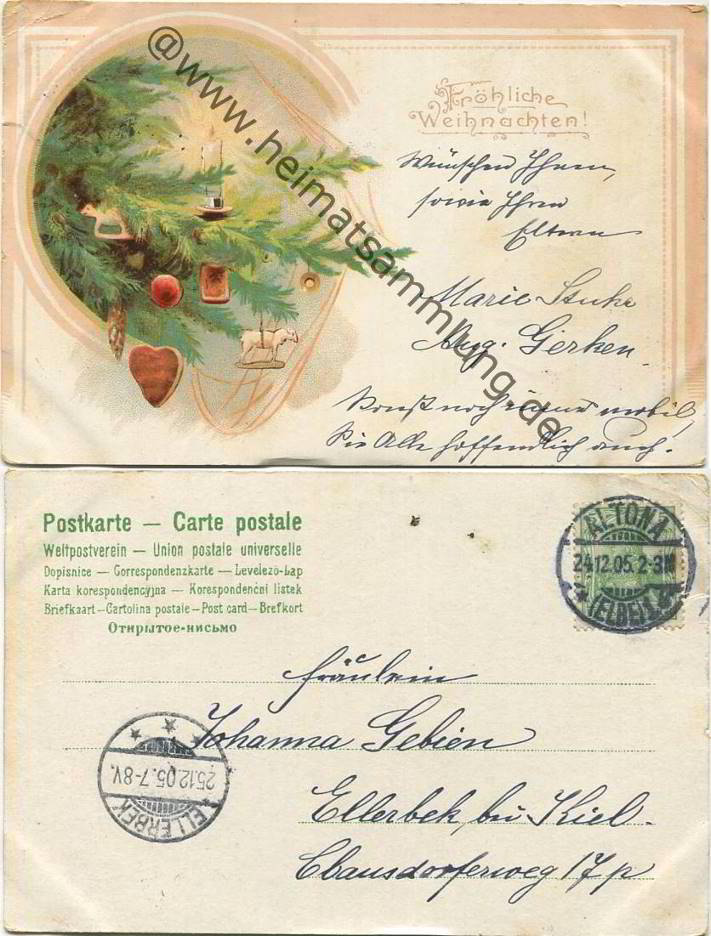 @www.heimatsammlung.de
Fröhliche
Weihnachten!
Wünschen Ihnen,
sowie Ihren
Eltern
Marie Stuhr
Aug. Gerken.
Sonst noch immer mobil,
Sie Alle hoffendlich auch!
Postkarte — Carte postale
Weltpostverein — Union postale universelle
Dopisnice — Correspondenzkarte — Levelező-Lap
Karta korespondencyjna — Korespondenční listek
Briefkaart — Cartolina postale — Post card — Brefkort
Открытое-письмо
ALTONA
24.12.05. 2-3N
(ELBE)1
Fräulein
Johanna Gebien
Ellerbek, bei Kiel.
Clausdorferweg 17 p
25.12.05. 7-8V.
ELLERBEK